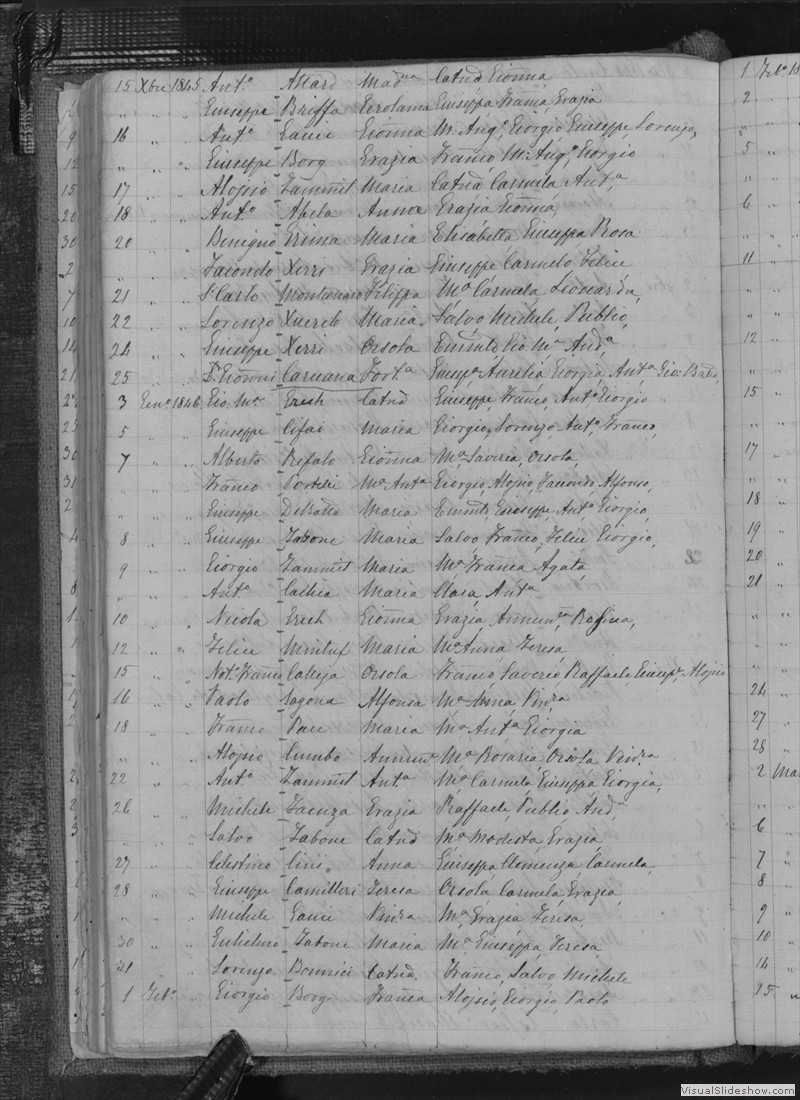 15 Xbre 1845 Ant.o Attard Madna Catnd Gionna
" " Giuseppe Briffa Gerolama Giuseppa Franca Grazia
16 " Ant.o Gauci Gionna M.a Ang.a Giorgio Giuseppe Lorenzo,
" " Giuseppe Borg Grazia Franco M.a Ang.a Giorgio
17 " Aloisio Zammit Maria Catnd Carmela Ant.a
18 " Ant.o Abela Anna Grazia Gionna,
20 " Benigno Grima Maria Elisabetta Giuseppa Rosa
" " Facondo Xerri Grazia Giuseppe Carmelo Felice
21 " Carlo Montanaro Filippa M.a Carmela, Leonarda,
22 " Lorenzo Xuereb Maria Salvo, Michele, Publio,
24 " Giuseppe Xerri Orsola M.a And.a
25 " Caruana Fort.a Aurelia, Giorgia, Ant.a
3 Genn.o 1846 Gio. M.a Grech Catnd Giuseppe, Franco, Ant.o Giorgio
5 " Giuseppe Cifai Maria Giorgio, Lorenzo Ant.o, Franco,
7 " Alberto Refalo Gionna M.a Saveria, Orsola,
" " Franco Portelli M.a Ant.a Giorgio, Aloisio, Facondo Alfonso,
" " Giuseppe DeBatto Maria Giuseppe Ant.o Giorgio,
8 " Giuseppe Zabone Maria Salvo Franco, Felice Giorgio,
9 " Giorgio Zammit Maria M.a Franca Agata,
" " Ant.o Cachia Maria Clara, Ant.a
10 " Nicola Grech Gionna Grazia, Rosina,
12 " Felice Mintuf Maria M.a Anna, Teresa,
15 " Not. Calleja Orsola Franco, Saverio, Raffaele, Aloisio
16 " Paolo Sagona Alfonsa M.a Anna, Vin.za
18 " Franco Pace Maria M.a Ant.a Giorgia
" " Aloisio Cumbo M.a Rosaria, Orsola Vin.za
22 " Ant.o Zammit Ant.a M.a Carmela, Giuseppa, Giorgia,
26 " Michele Faenza Grazia Raffaele, Publio, And.
" " Salvo Zabone Catnd M.a Modesta, Grazia,
27 " Celestino Cini Anna Giuseppa, Clemenza, Carmela,
28 " Giuseppe Camilleri Teresa Orsola Carmela, Grazia,
" " Michele Gauci Vin.za M.a Grazia Teresa,
30 " Guglielmo Zabone Maria M.a Giuseppa, Teresa,
31 " Lorenzo Bonnici Catnd Franco, Salvo Michele
1 Feb.o Giorgio Borg Franca Aloisio, Giorgio, Paolo
1 Feb.o 18
2
5
6
11
12
15
17
18
19
20
21
24
27
28
2 Mar
6
7
8
9
10
14
15
VisualSlideshow.com